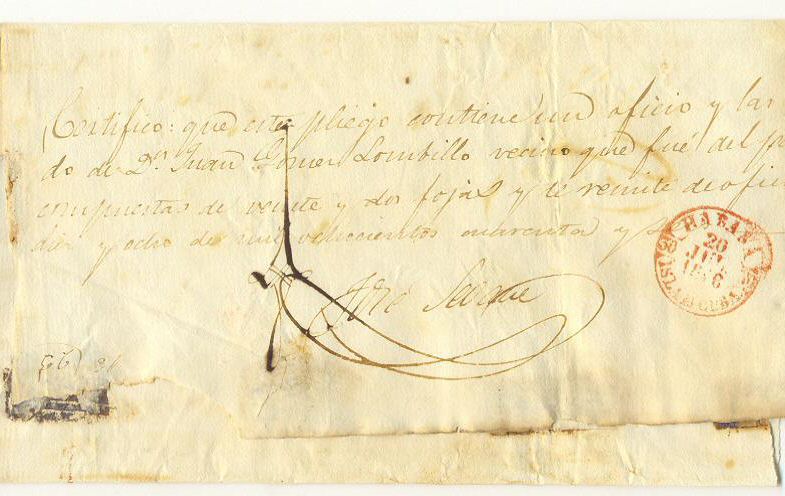 Certifico: que este pliego contiene un oficio y las
do de Dn. Juan Gomez Lombillo vecino que fué del
compuestas de veinte y dos fojas y se remite de ofi
diez y ocho de mil ochocientos cuarenta y
José
HABANA
20
JUL
1846
ISLA DE CUBA